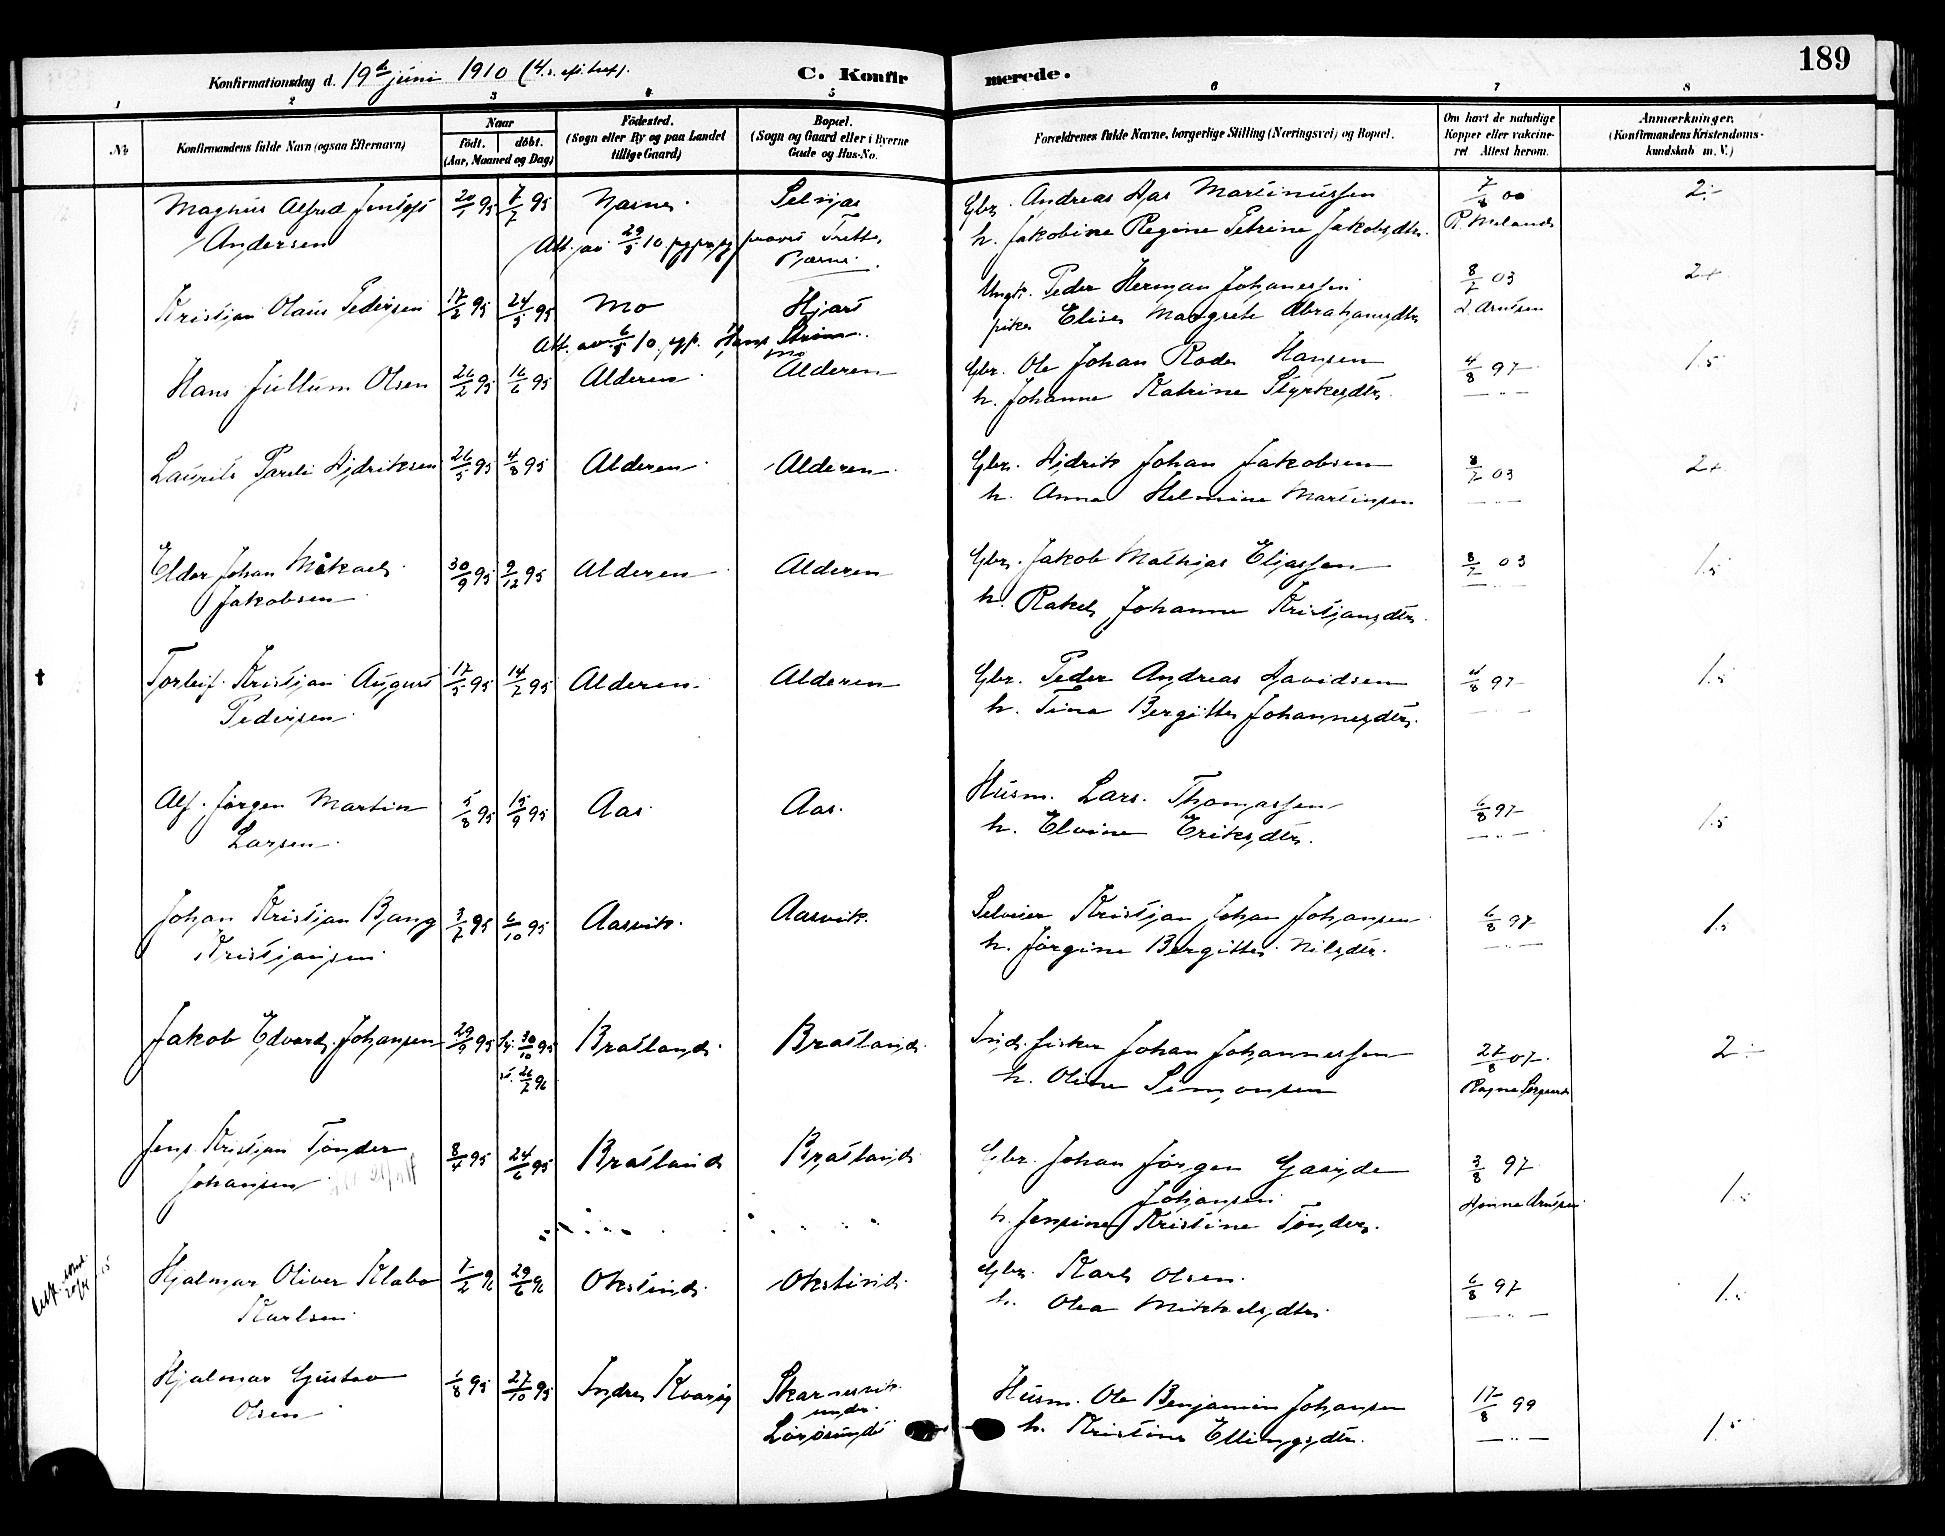 189
Konfirmationsdag d. 19de juni 1910 (4. s. eft. tref).
C. Konfirmerede.
1 2 3 4 5 6 7 8
No.
Konfirmandens fulde Navn (ogsaa Efternavn)
Naar
født. døbt.
(Aar, Maaned og Dag)
Fødested.
(Sogn eller By og paa Landet
tillige Gaard)
Bopæl.
(Sogn og Gaard eller i Byerne
Gade og Hus-No.
Forældrenes fulde Navne, borgerlige Stilling (Næringsvei) og Bopæl.
Om havt de naturlige
Kopper eller vakcine-
ret Attest herom.
Anmærkninger.
(Konfirmandens Kristendoms-
kundskab m. V.)
Magnus Alfred 20/1 95 7/7 95 Gbr. Andreas Aas Martinussen 7/8 00 2-
Andersen h. Jakobine Regine Petrine Jakobsdtr.
Att. av 29/5 10
Kristian Olaus Pedersen 17/2 95 24/5 95 Mo Hjart Ungk. Peder Herman Johanessen 8/7 03 2+
pike Elise Margrete Abrahamsdtr
Att. av 6/5 10
Hans Jullum Olsen 26/2 95 16/6 95 Alderen Alderen Gbr. Ole Johan Roder Hansen 4/8 97 1.5
h. Johanne Katrine Styrkesdtr.
Laurits Pareli Hjdriksen 26/5 95 4/8 95 Alderen Alderen Gbr. Hjdrik Johan Jakobsen 8/7 03 2+
h. Anna Helmine Martinsen
Eldor Johan Mikael 30/9 95 9/12 95 Alderen Alderen Gbr. Jakob Mathias Eliassen 8/7 03 1.5
Jakobsen h. Rakel Johanne Kristiansdtr.
† Torleif Kristian August 17/5 95 14/7 95 Alderen Alderen Gbr. Peder Andreas Davidsen 4/8 97 1.5
Pedersen h. Tina Bergitte Johannesdtr.
Alf Jørgen Martin 5/8 95 15/9 95 Aas Aas. Husm. Lars Thomassen 6/8 97 1.5
Larsen h. Elvine Eriksdtr.
Johan Kristian Bang 3/7 95 6/10 95 Aasvik. Aasvik. Selveier Kristian Johan Johansen 6/8 97 1.5
Kristiansen h. Jørgine Bergitte Nilsdtr.
Jakob Edvard Johansen 29/9 95 30/10 95 Bratland Bratland Ind. fisker Johan Johannessen 27/8 07 2-
26/7 96 h. Oline Simonsen
Jens Kristian Tønder 8/4 95 24/6 95 Bratland Bratland Gbr. Johan Jørgen Gaarde 3/8 97 1.5
Johansen Johansen
h. Jensine Kristine Tønder.
Hjalmar Oliver Klabo 7/2 96 29/6 96 Okstind Okstind Gbr. Karl Olsen 6/8 97 1.5
Karlsen h. Olea Mikkelsdtr.
Hjalmar Gustav 1/8 95 27/10 95 Indre Kvarøy Skarnesvik Husm. Ole Benjamin Johansen 17/8 99 1.5
Olsen under
Lurøsund h. Kristine Ellingsdtr.